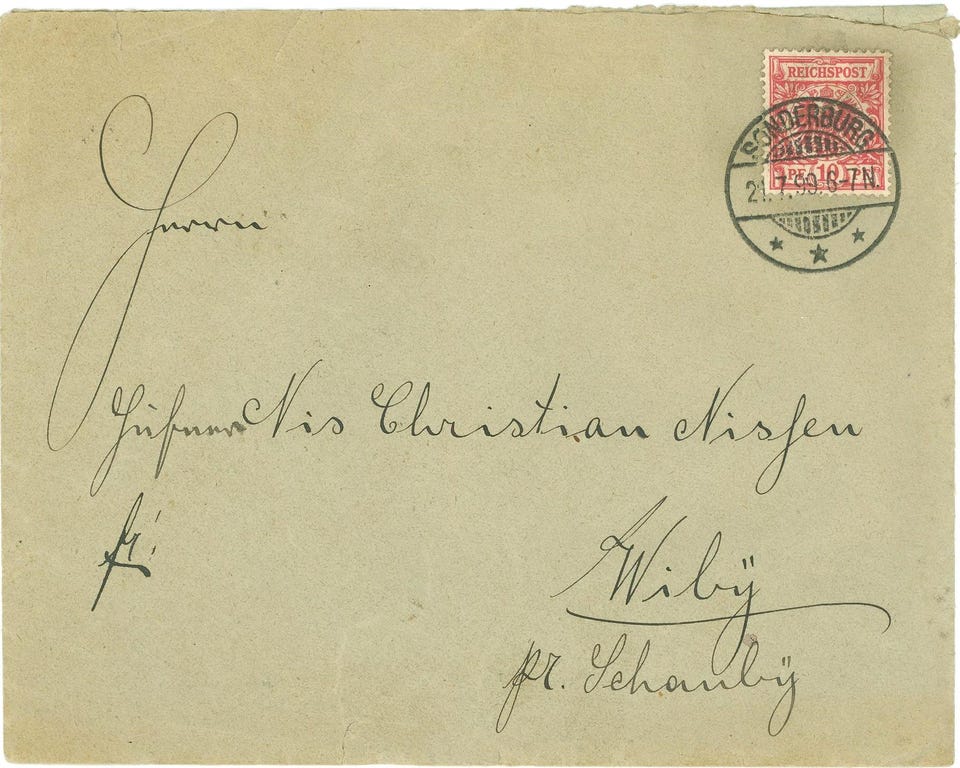 REICHSPOST
PF 10 PF
SONDERBURG
21.7.99.6-7N.
Herrn
Hüfner Nis Christian Nissen
fr.
Wibÿ
pr. Schaubÿ